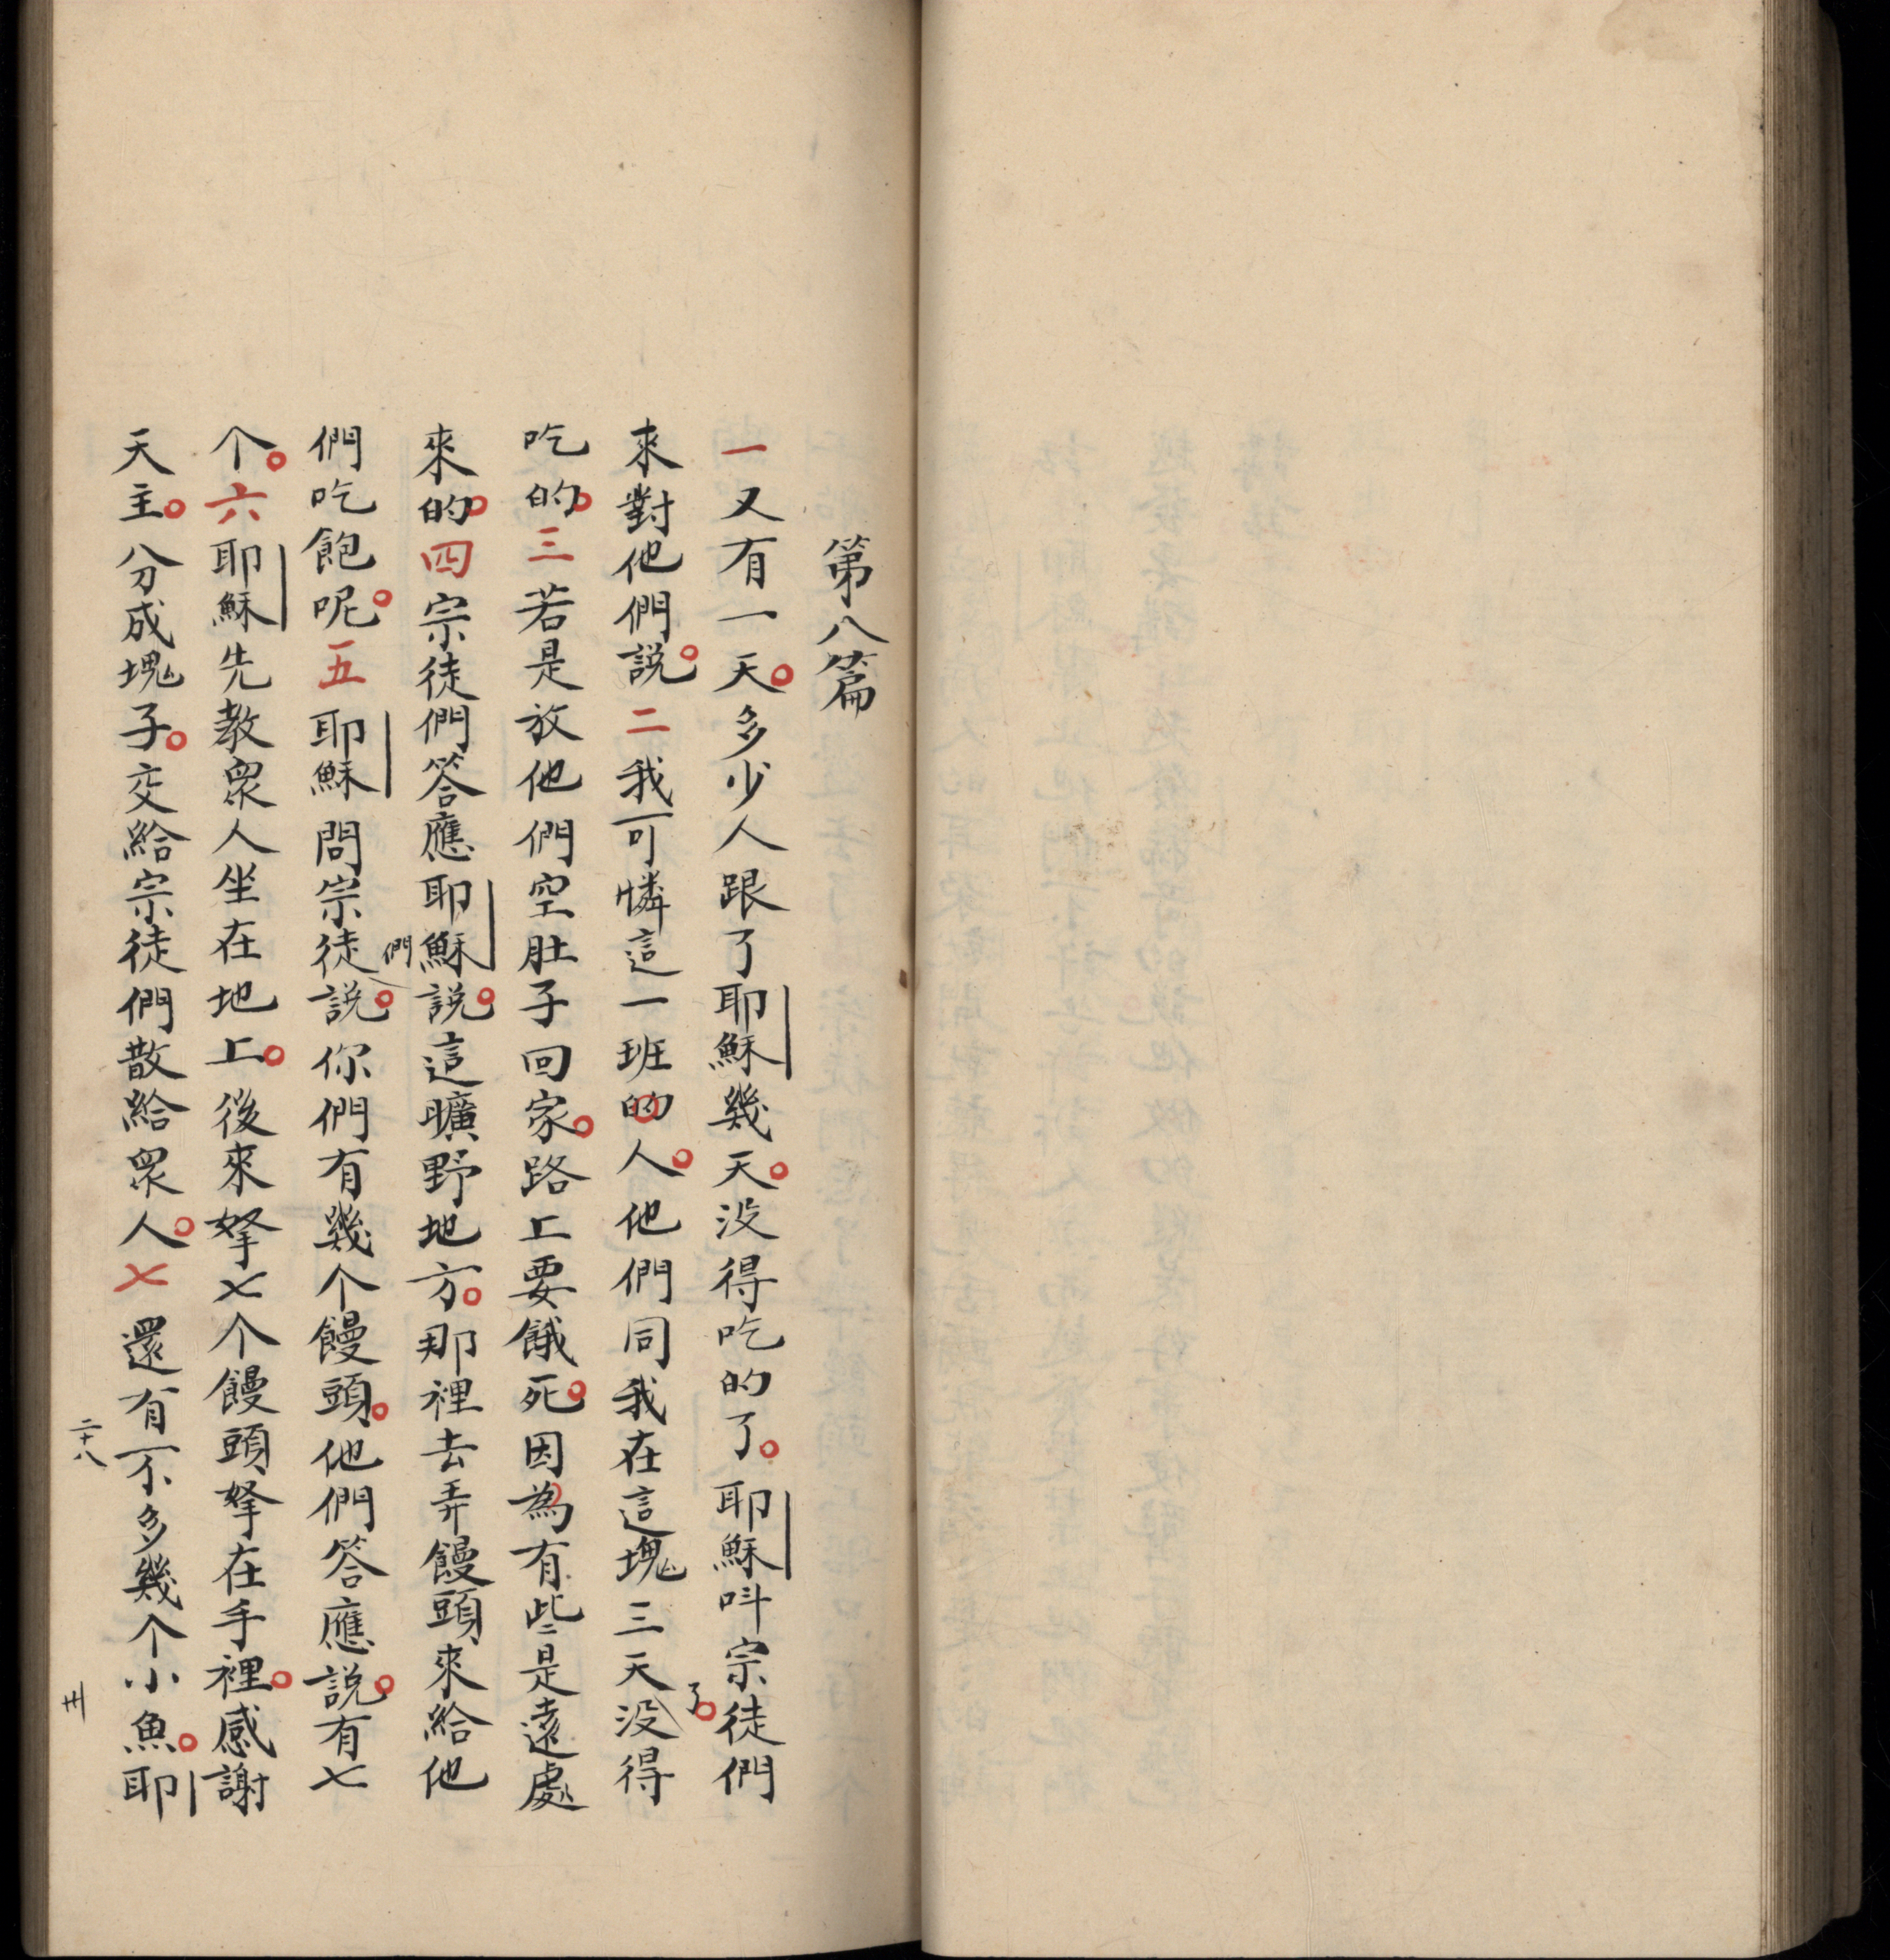 第八篇
一又有一天。多少人跟了耶穌幾天。没得吃的了。耶穌呌宗徒們
來對他們説。二我可憐這一班的人。他們同我在這塊三天没得
了。
吃的。三若是放他們空肚子回家。路上要餓死。因為有些是遠處
來的。四宗徒們答應耶穌説。這曠野地方。那裡去弄饅頭來給他
們
們吃飽呢。五耶穌問宗徒説。你們有幾个饅頭。他們答應説。有七
个。六耶穌先教衆人坐在地上。後來拏七个饅頭拏在手裡。感謝
天主。分成塊子。交給宗徒們散給衆人。七還有不多幾个小魚。耶
二十八
卅